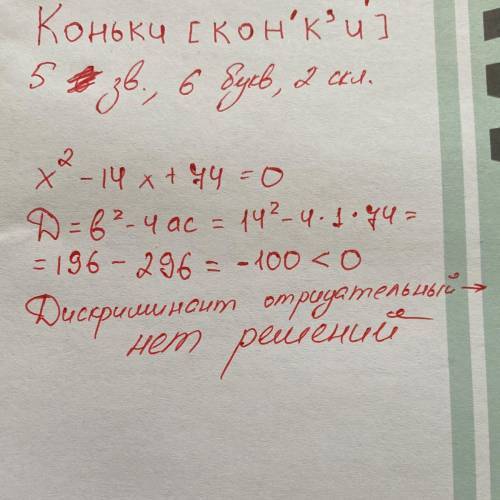 Коньки [кон'к'и']
5 зв., 6 букв, 2 скл.
x² - 14x + 74 = 0
Д = b² - 4ac = 14² - 4 · 1 · 74 =
= 196 - 296 = -100 < 0
Дискриминант отридательный →
нет решений